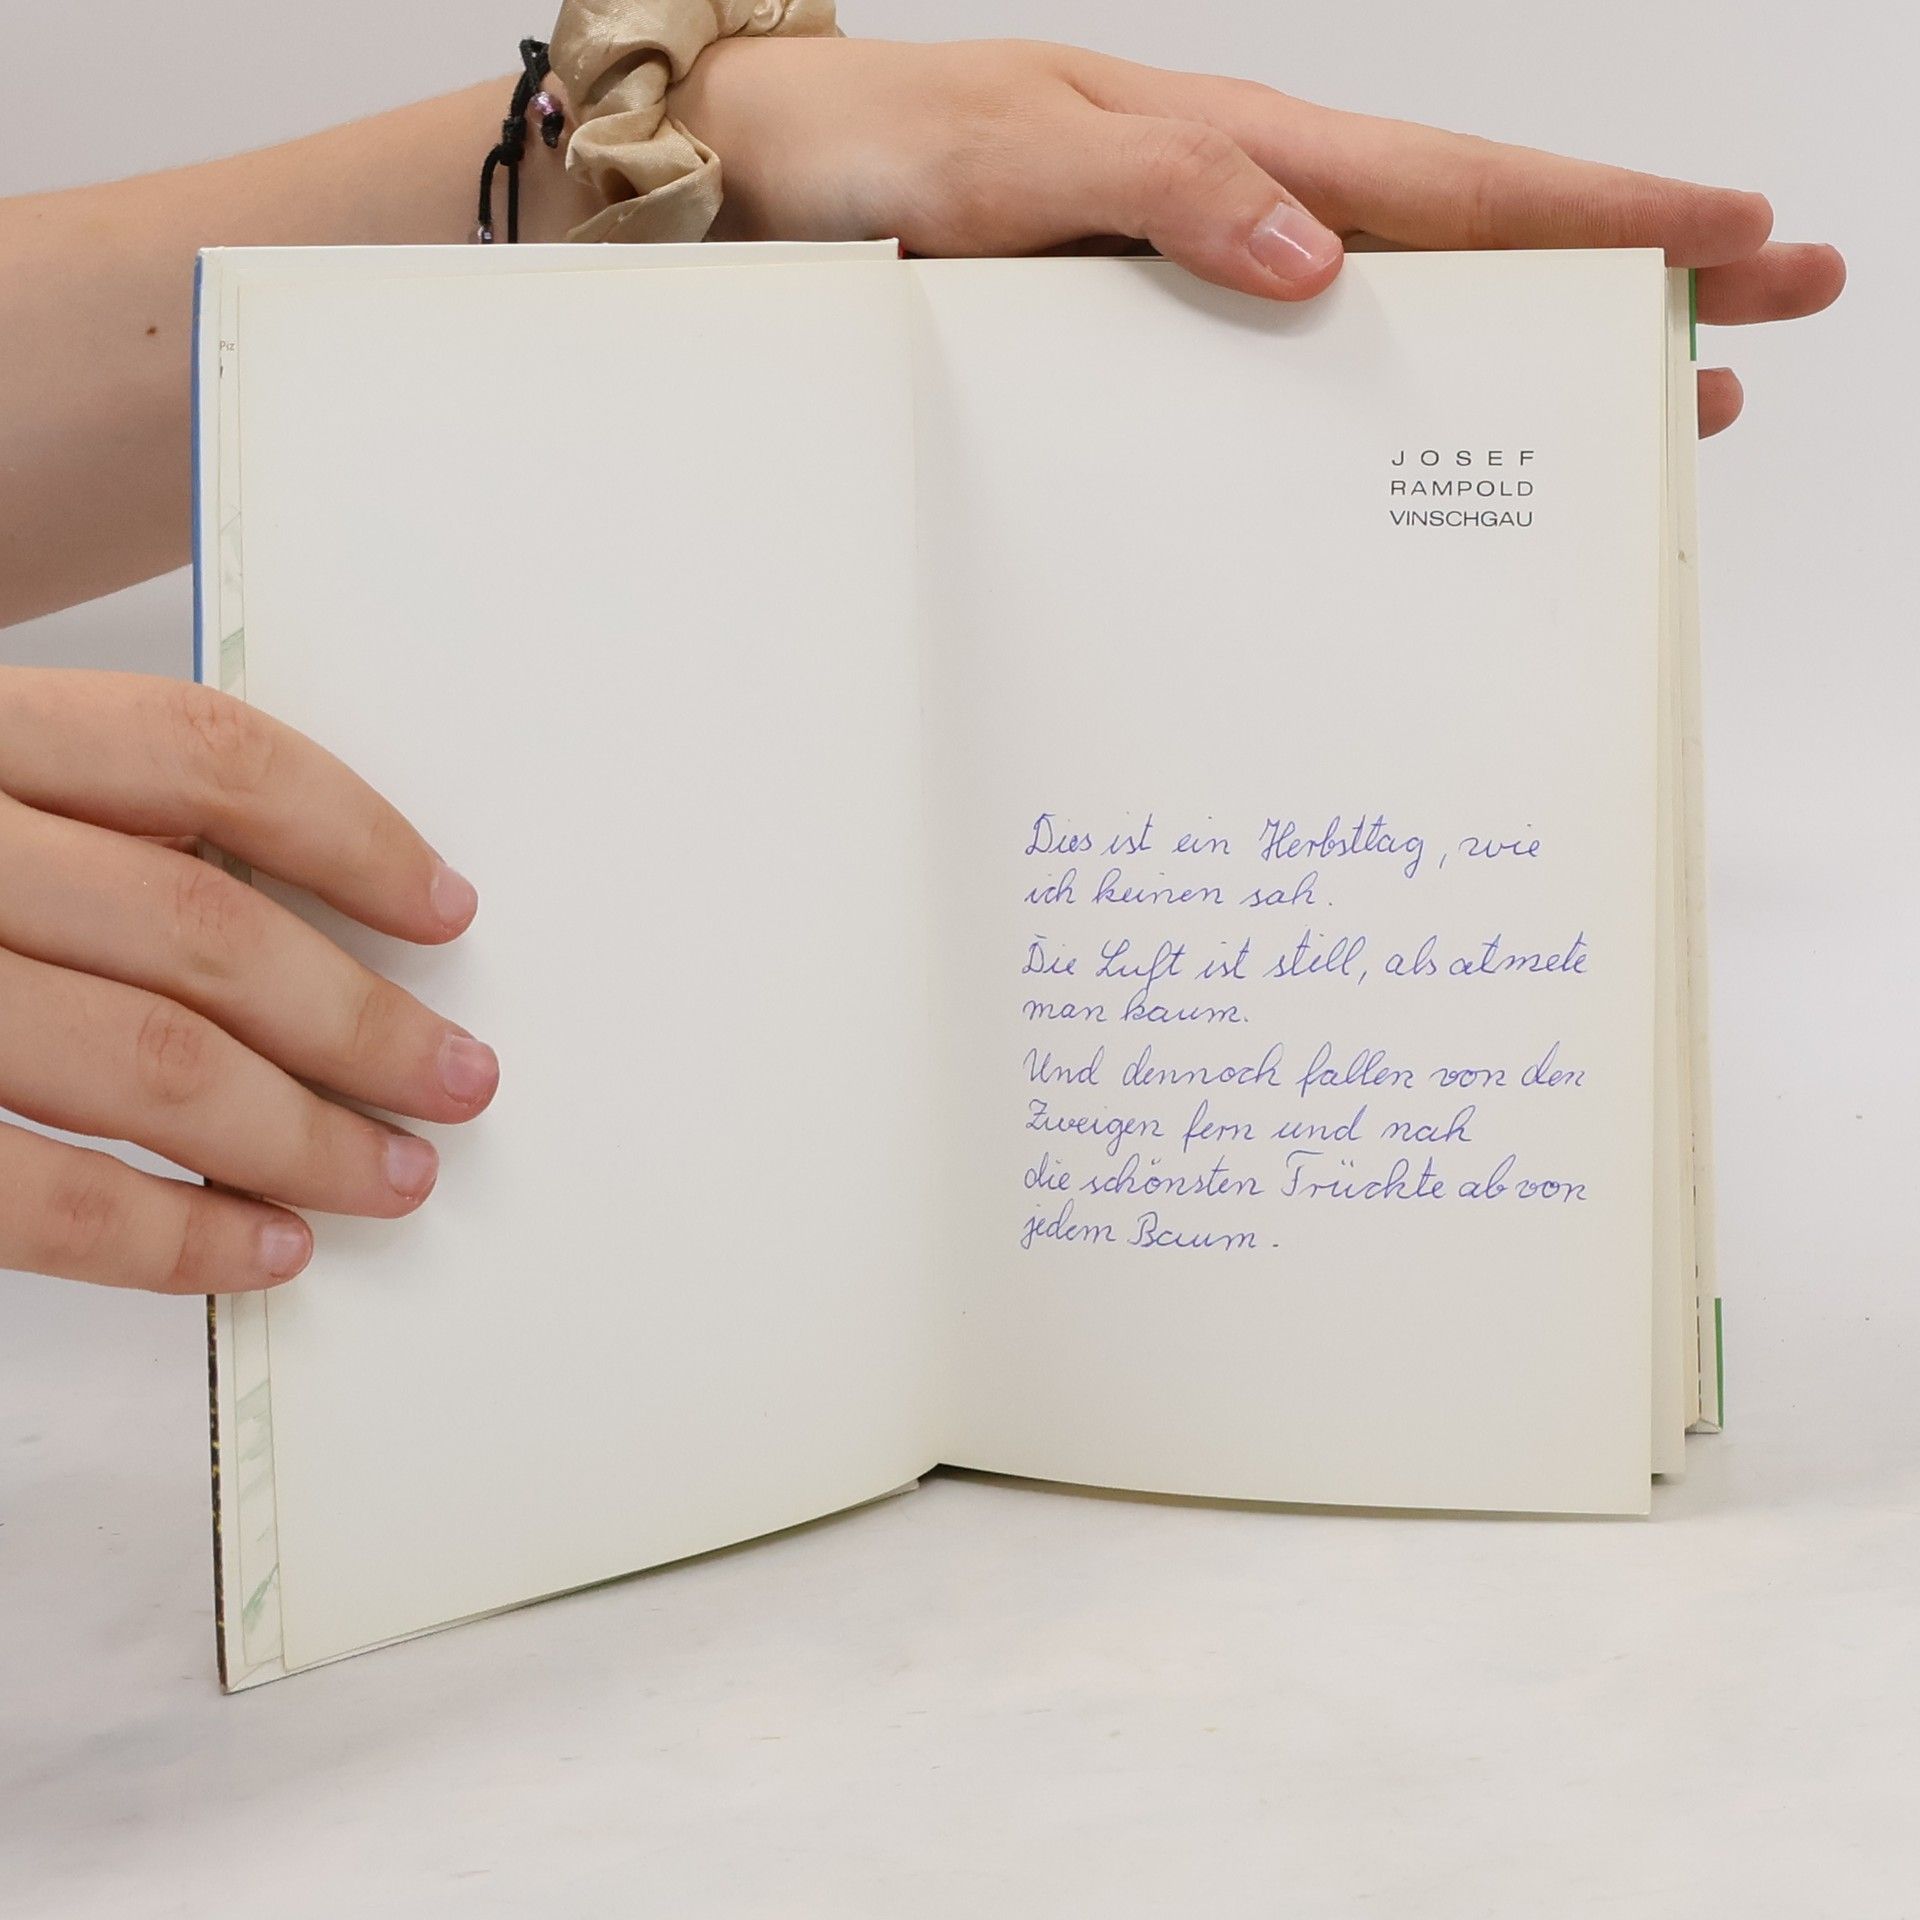 Piz
JOSEF
RAMPOLD
VINSCHGAU
Dies ist ein Herbsttag, wie
ich keinen sah.
Die Luft ist still, als atmete
man kaum.
Und dennoch fallen von den
Zweigen fern und nah
die schönsten Früchte ab von
jedem Baum.